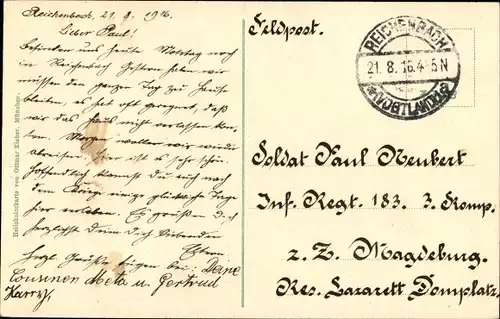 Reichenbach, 21. 8. 1916.
Lieber Paul!
Befinden uns heute Montag noch
in Reichenbach. Gestern haben wir
müssen den ganzen Tag zu Hause
bleiben, es hat oft geregnet, daß
wir das Haus nicht verlassen konn-
ten. Morgen wollen wir wieder
abreisen. Hier ist es sehr schön.
Hoffentlich kannst Du auch nach
dem Kriege einige glückliche Tage
hier erleben. Es grüßen Dich
herzlichst Deine Dich liebenden
Eltern.
Herzl. Grüße bei: Deine
Cousinen Meta u. Gertrud
Harry.
Reichsbachkarte von Ottmar Zieher, München.
Feldpost.
REICHENBACH
21. 8. 16. 4-5 N
* (VOGTLAND) *
Soldat Paul Neubert
Inf. Regt. 183. 3. Komp.
z. Z. Magdeburg.
Res. Lazarett Domplatz.